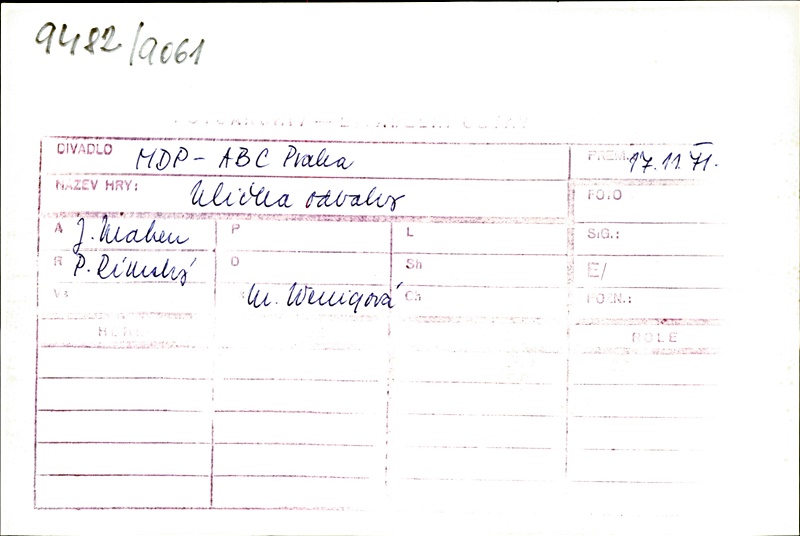 9482/9061
DIVADLO MDP - ABC Praha PREM. 17.11.71.
NÁZEV HRY: Ulička odvahy FOTO
A J. Mahen P L SIG.:
R P. Rímský D Sh E/
Vs M. Wenigová Ch POZN.:
ROLE